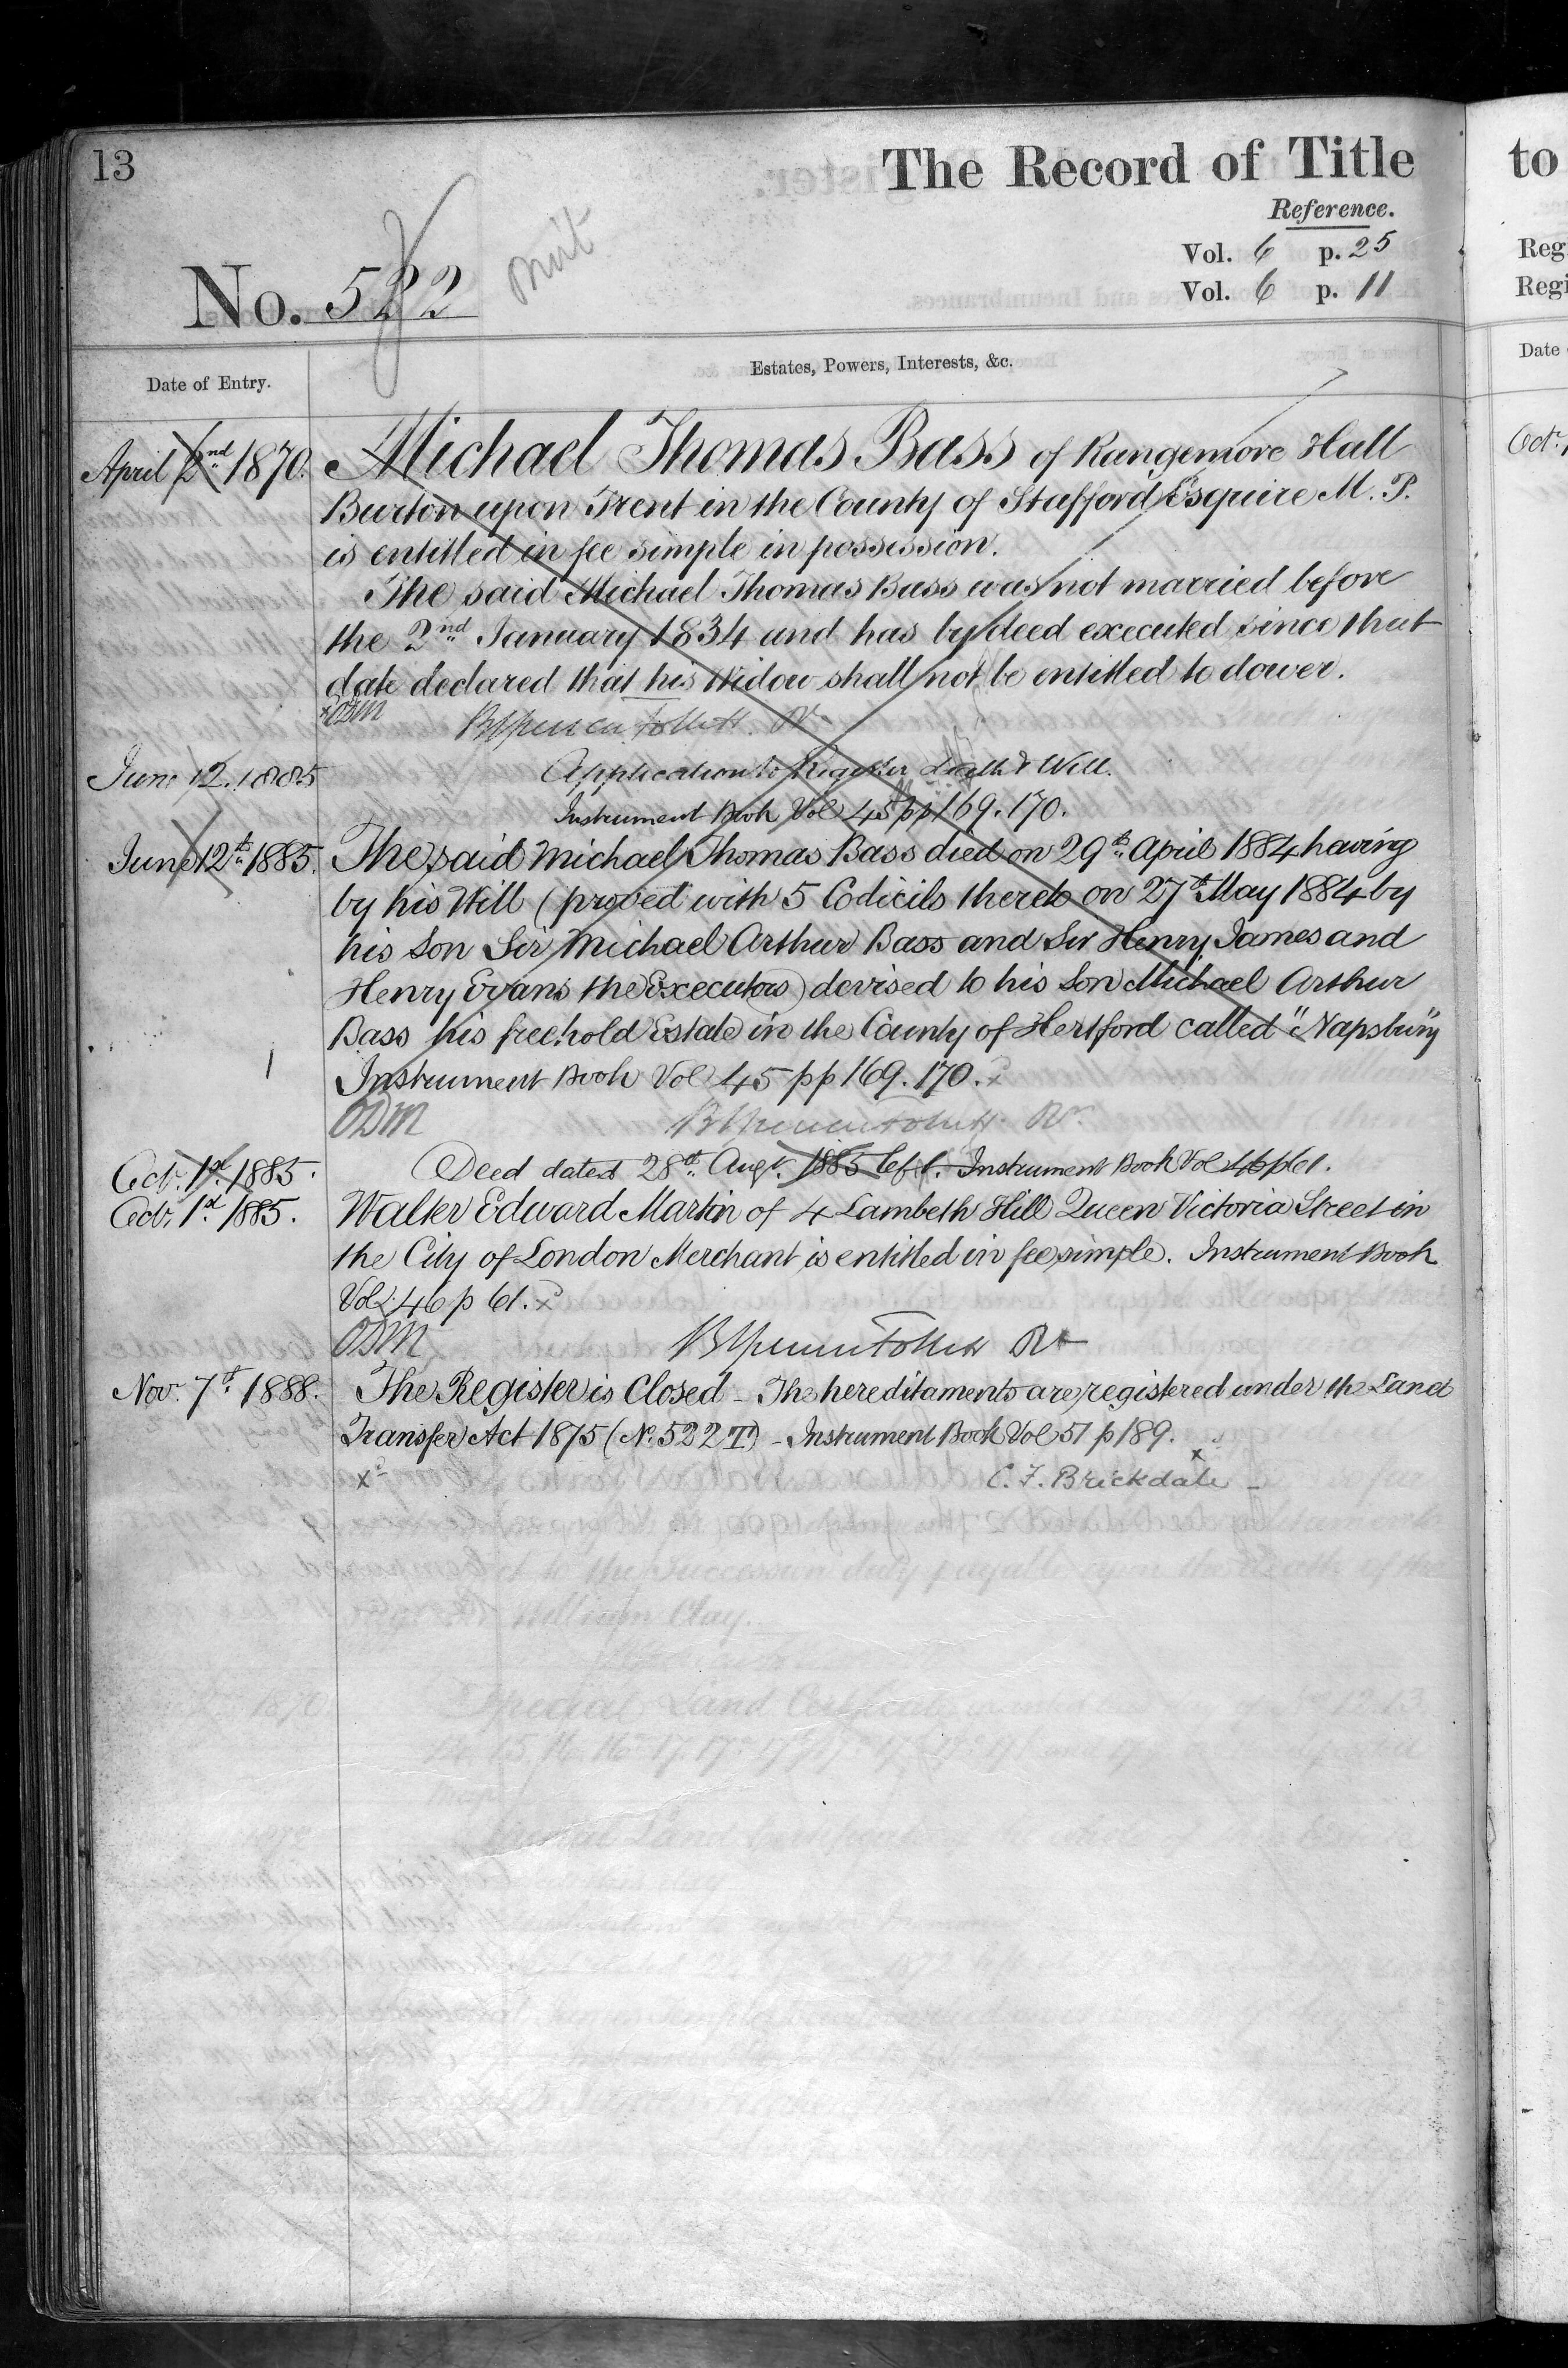 13
The Record of Title
Reference.
Vol. 6 p. 25
Vol. 6 p. 11
No. 522
Date of Entry.
Estates, Powers, Interests, &c.
April 2nd 1870. Michael Thomas Bass of Rangemore Hall
Burton upon Trent in the County of Stafford Esquire M. P.
is entitled in fee simple in possession.
The said Michael Thomas Bass was not married before
the 2nd January 1834 and has by deed executed since that
date declared that his Widow shall not be entitled to dower.
ODM
June 12. 1885 Application to Register Death & Will.
Instrument Book Vol 45 pp 169. 170.
June 12th 1885. The said Michael Thomas Bass died on 29th April 1884 having
by his Will (proved with 5 Codicils thereto on 27th May 1884 by
his Son Sir Michael Arthur Bass and Sir Henry James and
Henry Evans the Executors) devised to his Son Michael Arthur
Bass his freehold Estate in the County of Hertford called "Napsbury"
Instrument Book Vol 45 pp 169. 170.
ODM
Oct. 1st 1885. Deed dated 28th Augt. 1885 left. Instrument Book Vol 46 p 61.
Oct. 1st 1885. Walter Edward Martin of 4 Lambeth Hill Queen Victoria Street in
the City of London Merchant is entitled in fee simple. Instrument Book
Vol. 46 p 61.
ODM
Nov. 7th 1888. The Register is Closed - The hereditaments are registered under the Land
Transfer Act 1875 (No. 522 T) - Instrument Book Vol 51 p 189.
C. F. Brickdale
to
Reg
Regi
Date
Oct.